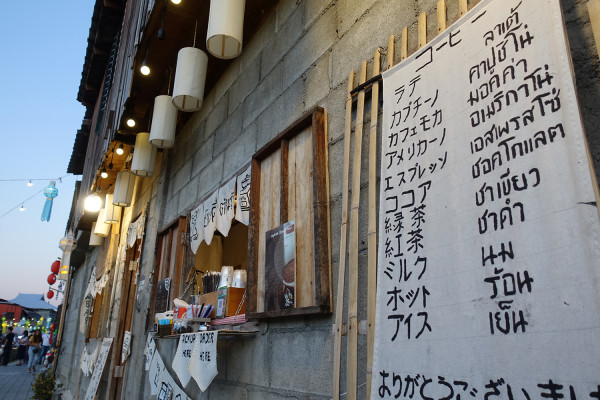 コーヒー
ラテ ลาเต้
カプチーノ คาปูชิโน่
カフェモカ มอคค่า
アメリカーノ อเมริกาโน่
エスプレッソ เอสเพรสโซ่
ココア ชอคโกแลต
緑茶 ชาเขียว
紅茶 ชาดำ
ミルク นม
ホット ร้อน
アイス เย็น
ありがとうございました
PICKUP HERE
ORDER HERE